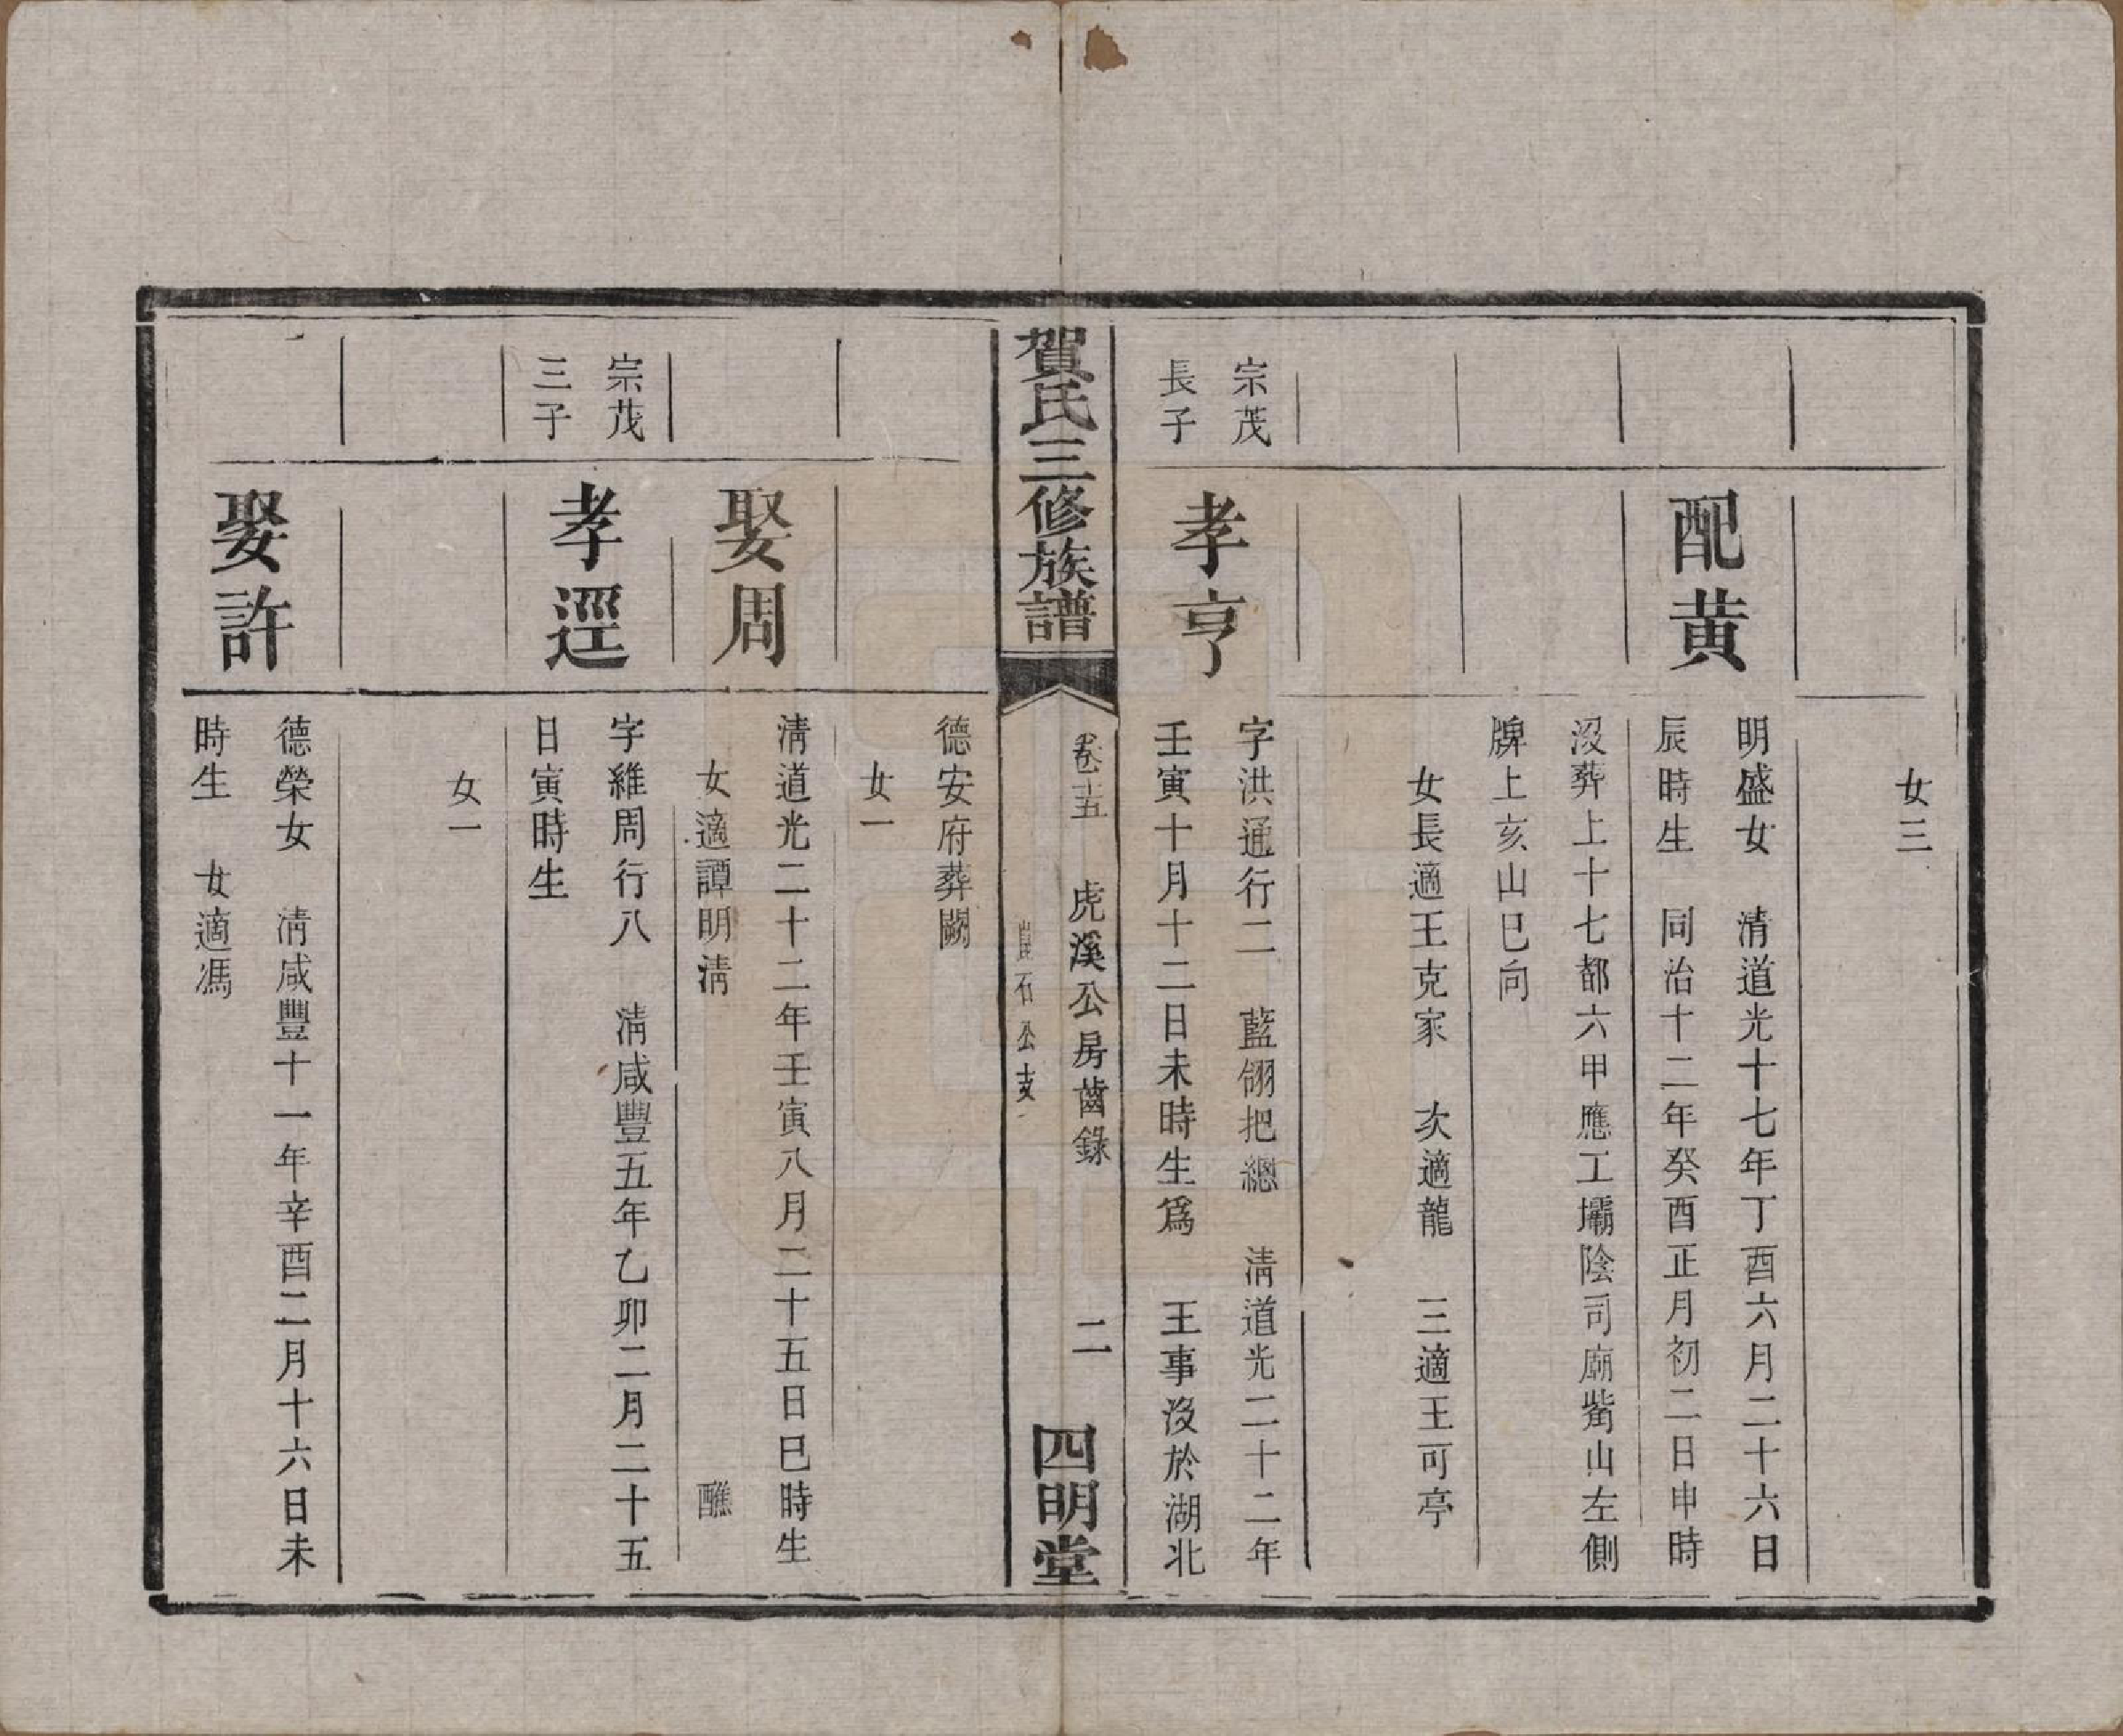 女三
配黄
明盛女　清道光十七年丁酉六月二十六日
辰時生　同治十二年癸酉正月初二日申時
沒葬上十七都六甲應工壩陰司廟觜山左側
牌上亥山巳向
女長適王克家　次適龍　三適王可亭
宗茂
長子
孝亨
字洪通行二　藍翎把總　清道光二十二年
壬寅十月十二日未時生爲　王事沒於湖北
賀氏三修族譜
卷十五　虎溪公房齒錄
石公支
二
四明堂
德安府葬闕
女一
娶周
清道光二十二年壬寅八月二十五日巳時生
女適譚明清　醮
宗茂
三子
孝逕
字維周行八　清咸豐五年乙卯二月二十五
日寅時生
女一
娶許
德榮女　清咸豐十一年辛酉二月十六日未
時生　女適馮